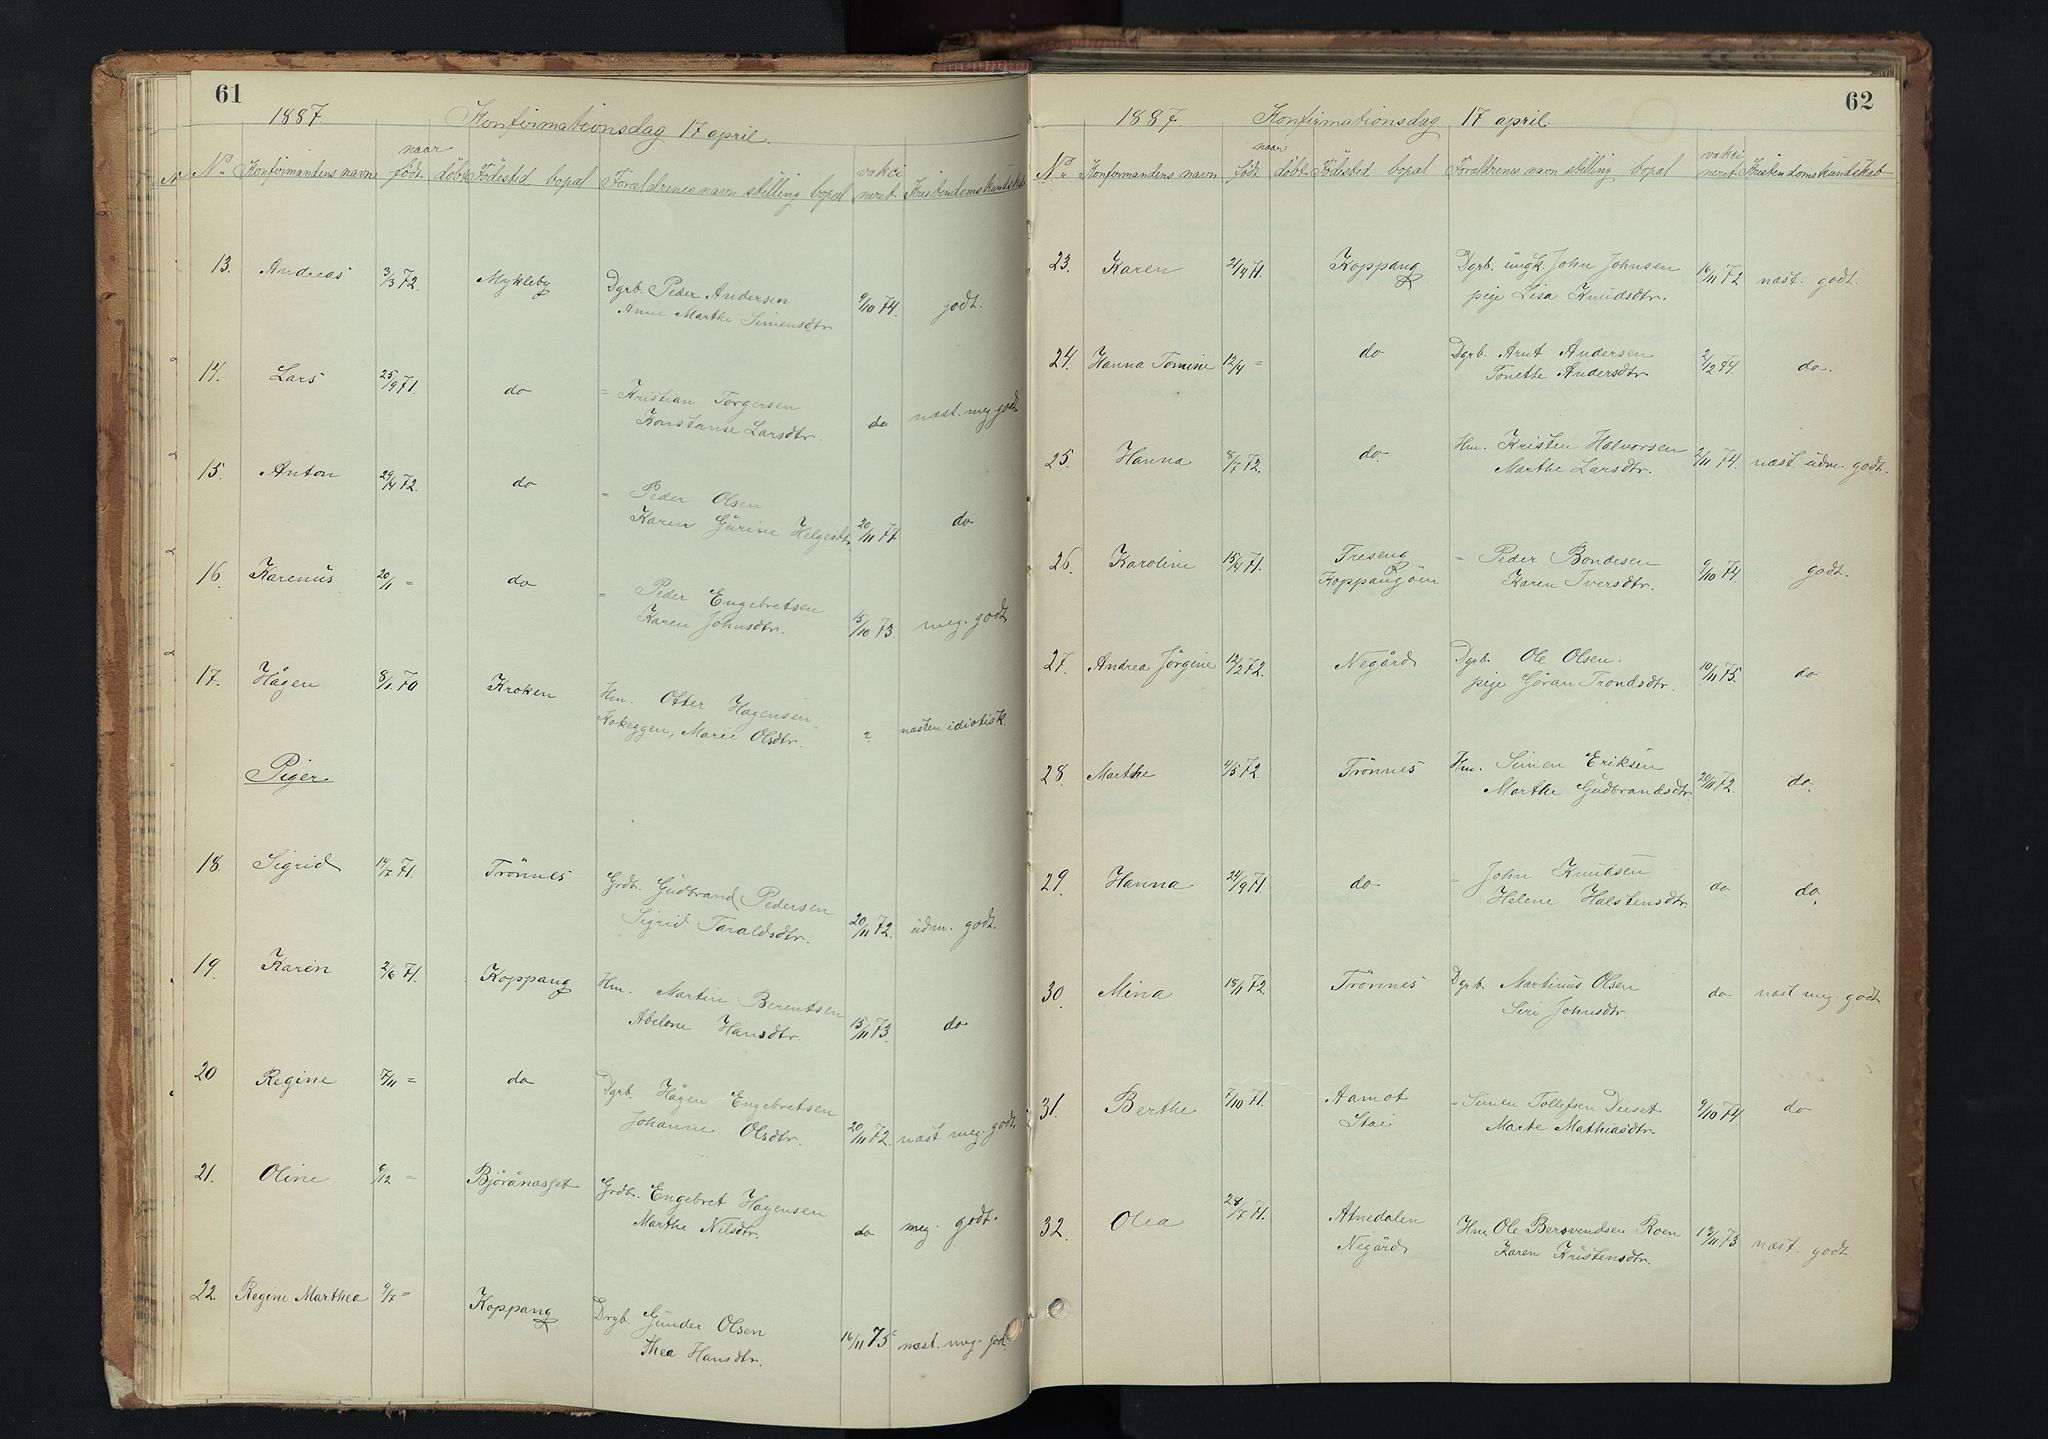 61
1887. Konfirmationsdag 17 april.
No. Konfirmandens navn naar født døbt Födested bopæl Forældrenes navn stilling bopæl vakcineret Kristendomskundskab
13. Andreas 3/3 72. Mykleby Dgrb. Peder Andersen 9/10 74. godt.
Anne Marthe Simensdtr.
14. Lars 25/9 71. do = Kristian Torgersen do næst. meg. godt
Konstanse Larsdtr.
15. Anton 29/4 72. do = Peder Olsen 20/11 77 do
Karen Gurine Helgesdtr.
16. Karenus 20/1 = do = Peder Engebretsen 15/10 73. meg. godt
Karen Johnsdtr.
17. Hågen 8/1 70 Kroken Hm. Otter Hagensen. ? næsten idiotisk.
Kakeggen, Marie Olsdtr.
Piger.
18. Sigrid 14/7 71. Trönnes Grdb. Gudbrand Pedersen 20/11 72. udm. godt.
Sigrid Taraldsdtr.
19. Karen 2/6 71. Koppang Hm. Martin Berentsen 15/11 73. do
Abelone Hansdtr.
20 Regine 7/11 = do Dgrb. Hågen Engebretsen 20/11 72. næst. meg. godt
Johanne Olsdtr.
21. Oline 6/12 = Björånæsset Grdb. Engebret Hagensen do meg. godt.
Marthe Nilsdtr.
22. Regine Marthea 9/7 = Koppang Drgb. Gunder Olsen 16/11 75 næst. meg. godt.
Thea Hansdtr.
62
1887. Konfirmationsdag 17 april.
No. Konfirmandens navn naar født døbt Födested bopæl Forældrenes navn stilling bopæl vakcineret Kristendomskundskab
23. Karen 2/9 71. Koppang Dgrb. ungk. John Johnsen 16/11 72 næst. godt.
pige Lisa Knudsdtr.
24. Hanna Tomine 12/4 = do Dgrb. Arnt Andersen 2/12 74. do.
Tonette Andersdtr.
25. Hanna 8/7 72. do. Hm. Kristen Halvorsen 2/11 74. næst. udm. godt.
Marthe Larsdtr.
26. Karoline 15/4 71. Treseng = Peder Bondesen 9/10 74. godt.
Koppangöen Karen Iversdtr.
27. Andrea Jörgine 12/2 72. Negård Dgrb. Ole Olsen. 10/11 75. do
pige Göran Trondsdtr.
28. Marthe 4/5 72. Trönnes Hm. Simen Eriksen 20/11 72. do.
Marthe Gudbrandsdtr.
29. Hanna 24/9 71. do = John Knudsen do do.
Helene Halstensdtr.
30. Mina 18/1 72. Trönnes Dgrb. Martinus Olsen do næst meg. godt
Siri Johnsdtr.
31. Berthe 7/10 71. Aamot = Simen Tollefsen Deset 9/10 74. do
Stai Marte Mathiasdtr.
32. Olea 28/7 71. Atnedalen Hm. Ole Bersvendsen Roen 12/11 73 næst. godt.
Negård Karen Kristensdtr.